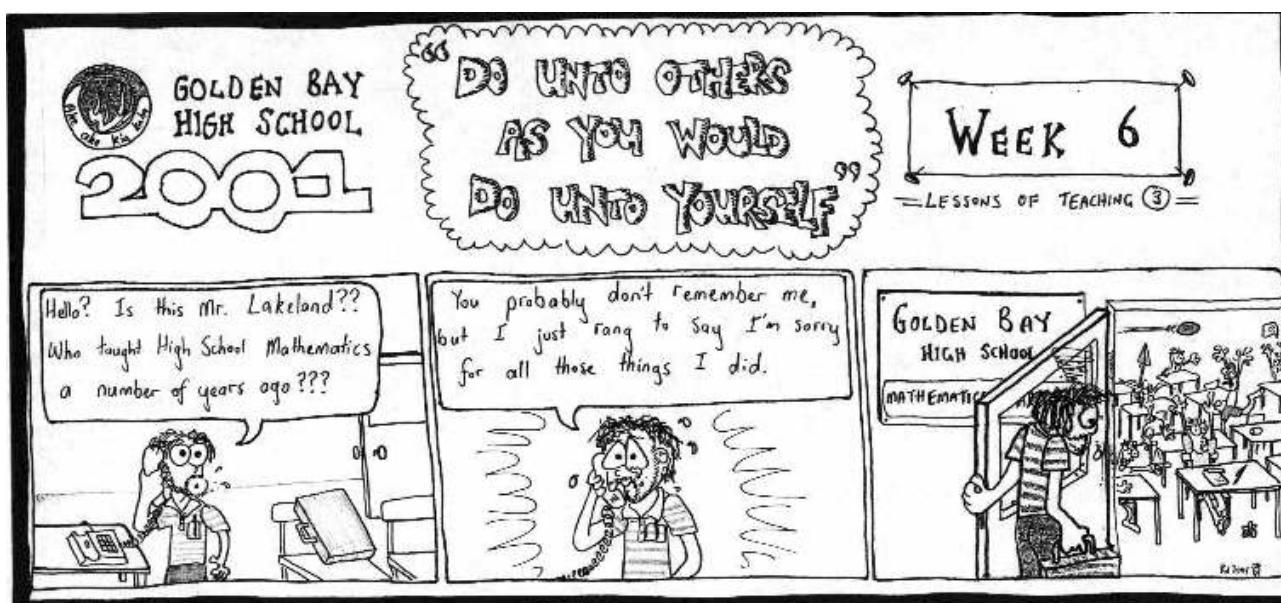 GOLDEN BAY
HIGH SCHOOL
2001
"DO UNTO OTHERS
AS YOU WOULD
DO UNTO YOURSELF"
WEEK 6
=LESSONS OF TEACHING 3=
Hello? Is this Mr. Lakeland??
Who taught High School Mathematics
a number of years ago???
You probably don't remember me,
but I just rang to say I'm sorry
for all those things I did.
GOLDEN BAY
HIGH SCHOOL